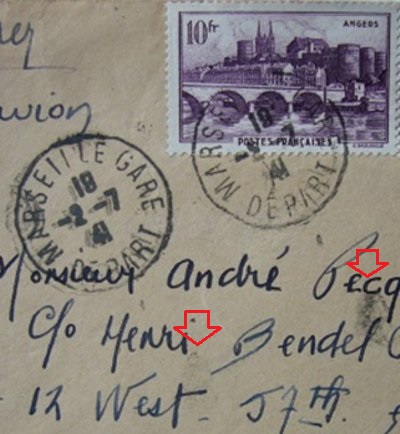 10fr
ANGERS
POSTES FRANÇAISES
MARSEILLE GARE
18
-2-7
41
DÉPART
18
-7
41
DÉPART
Monsieur André Pecq
c/o Henri Bendel
12 West 57th.